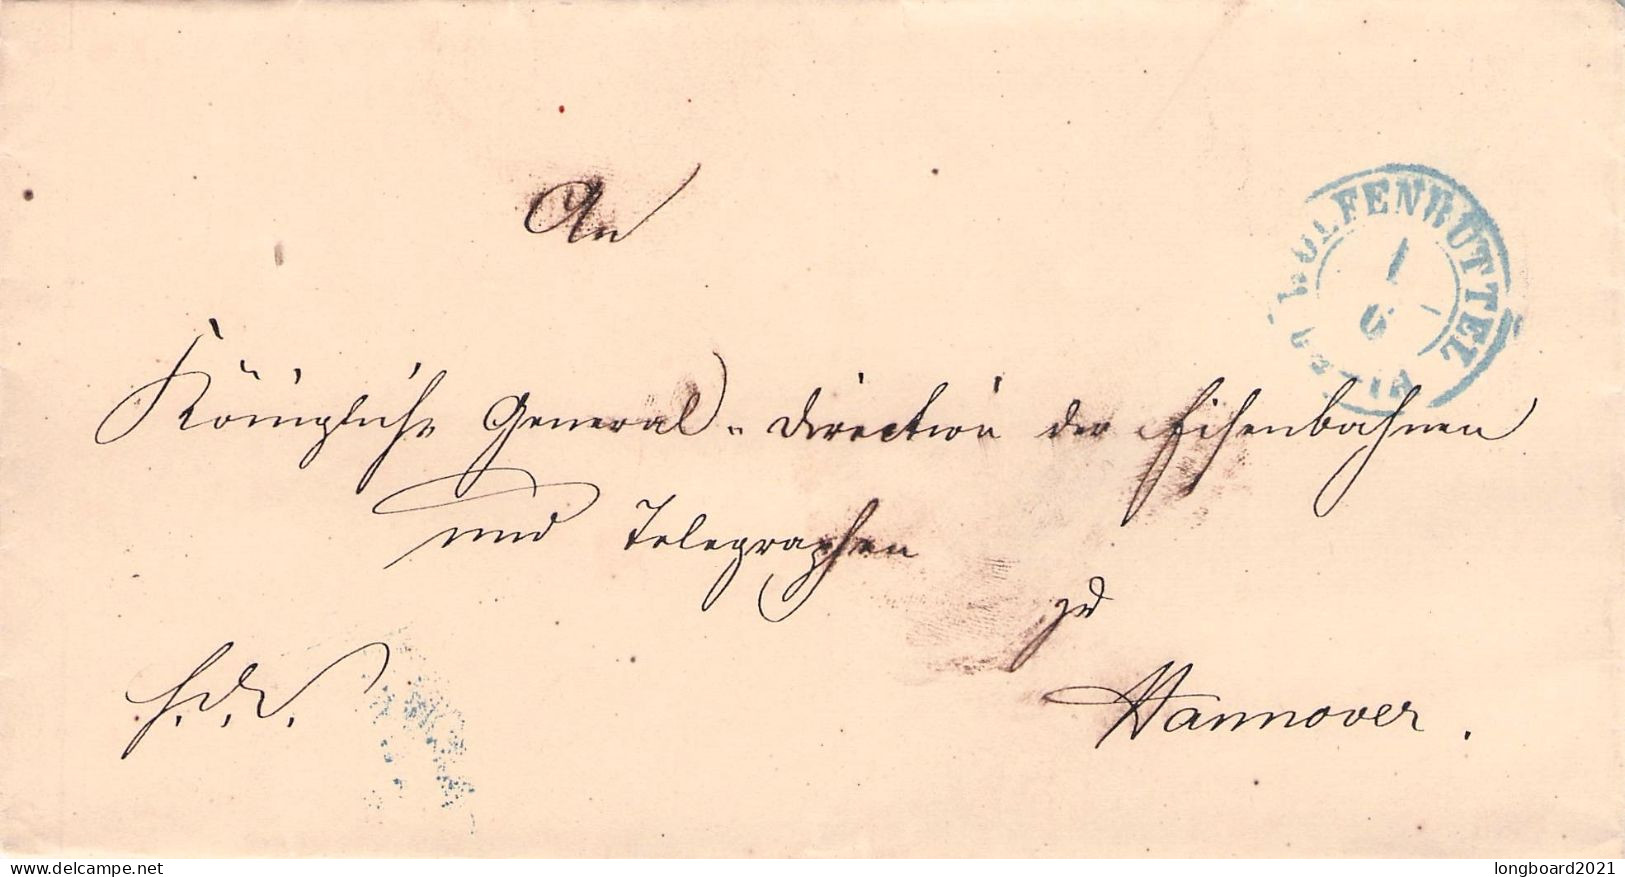 An
WOLFENBÜTTEL
1
6
Königliche General-Direction der Eisenbahnen
und Telegraphen
zu
Hannover.
delcampe.net
longboard2021